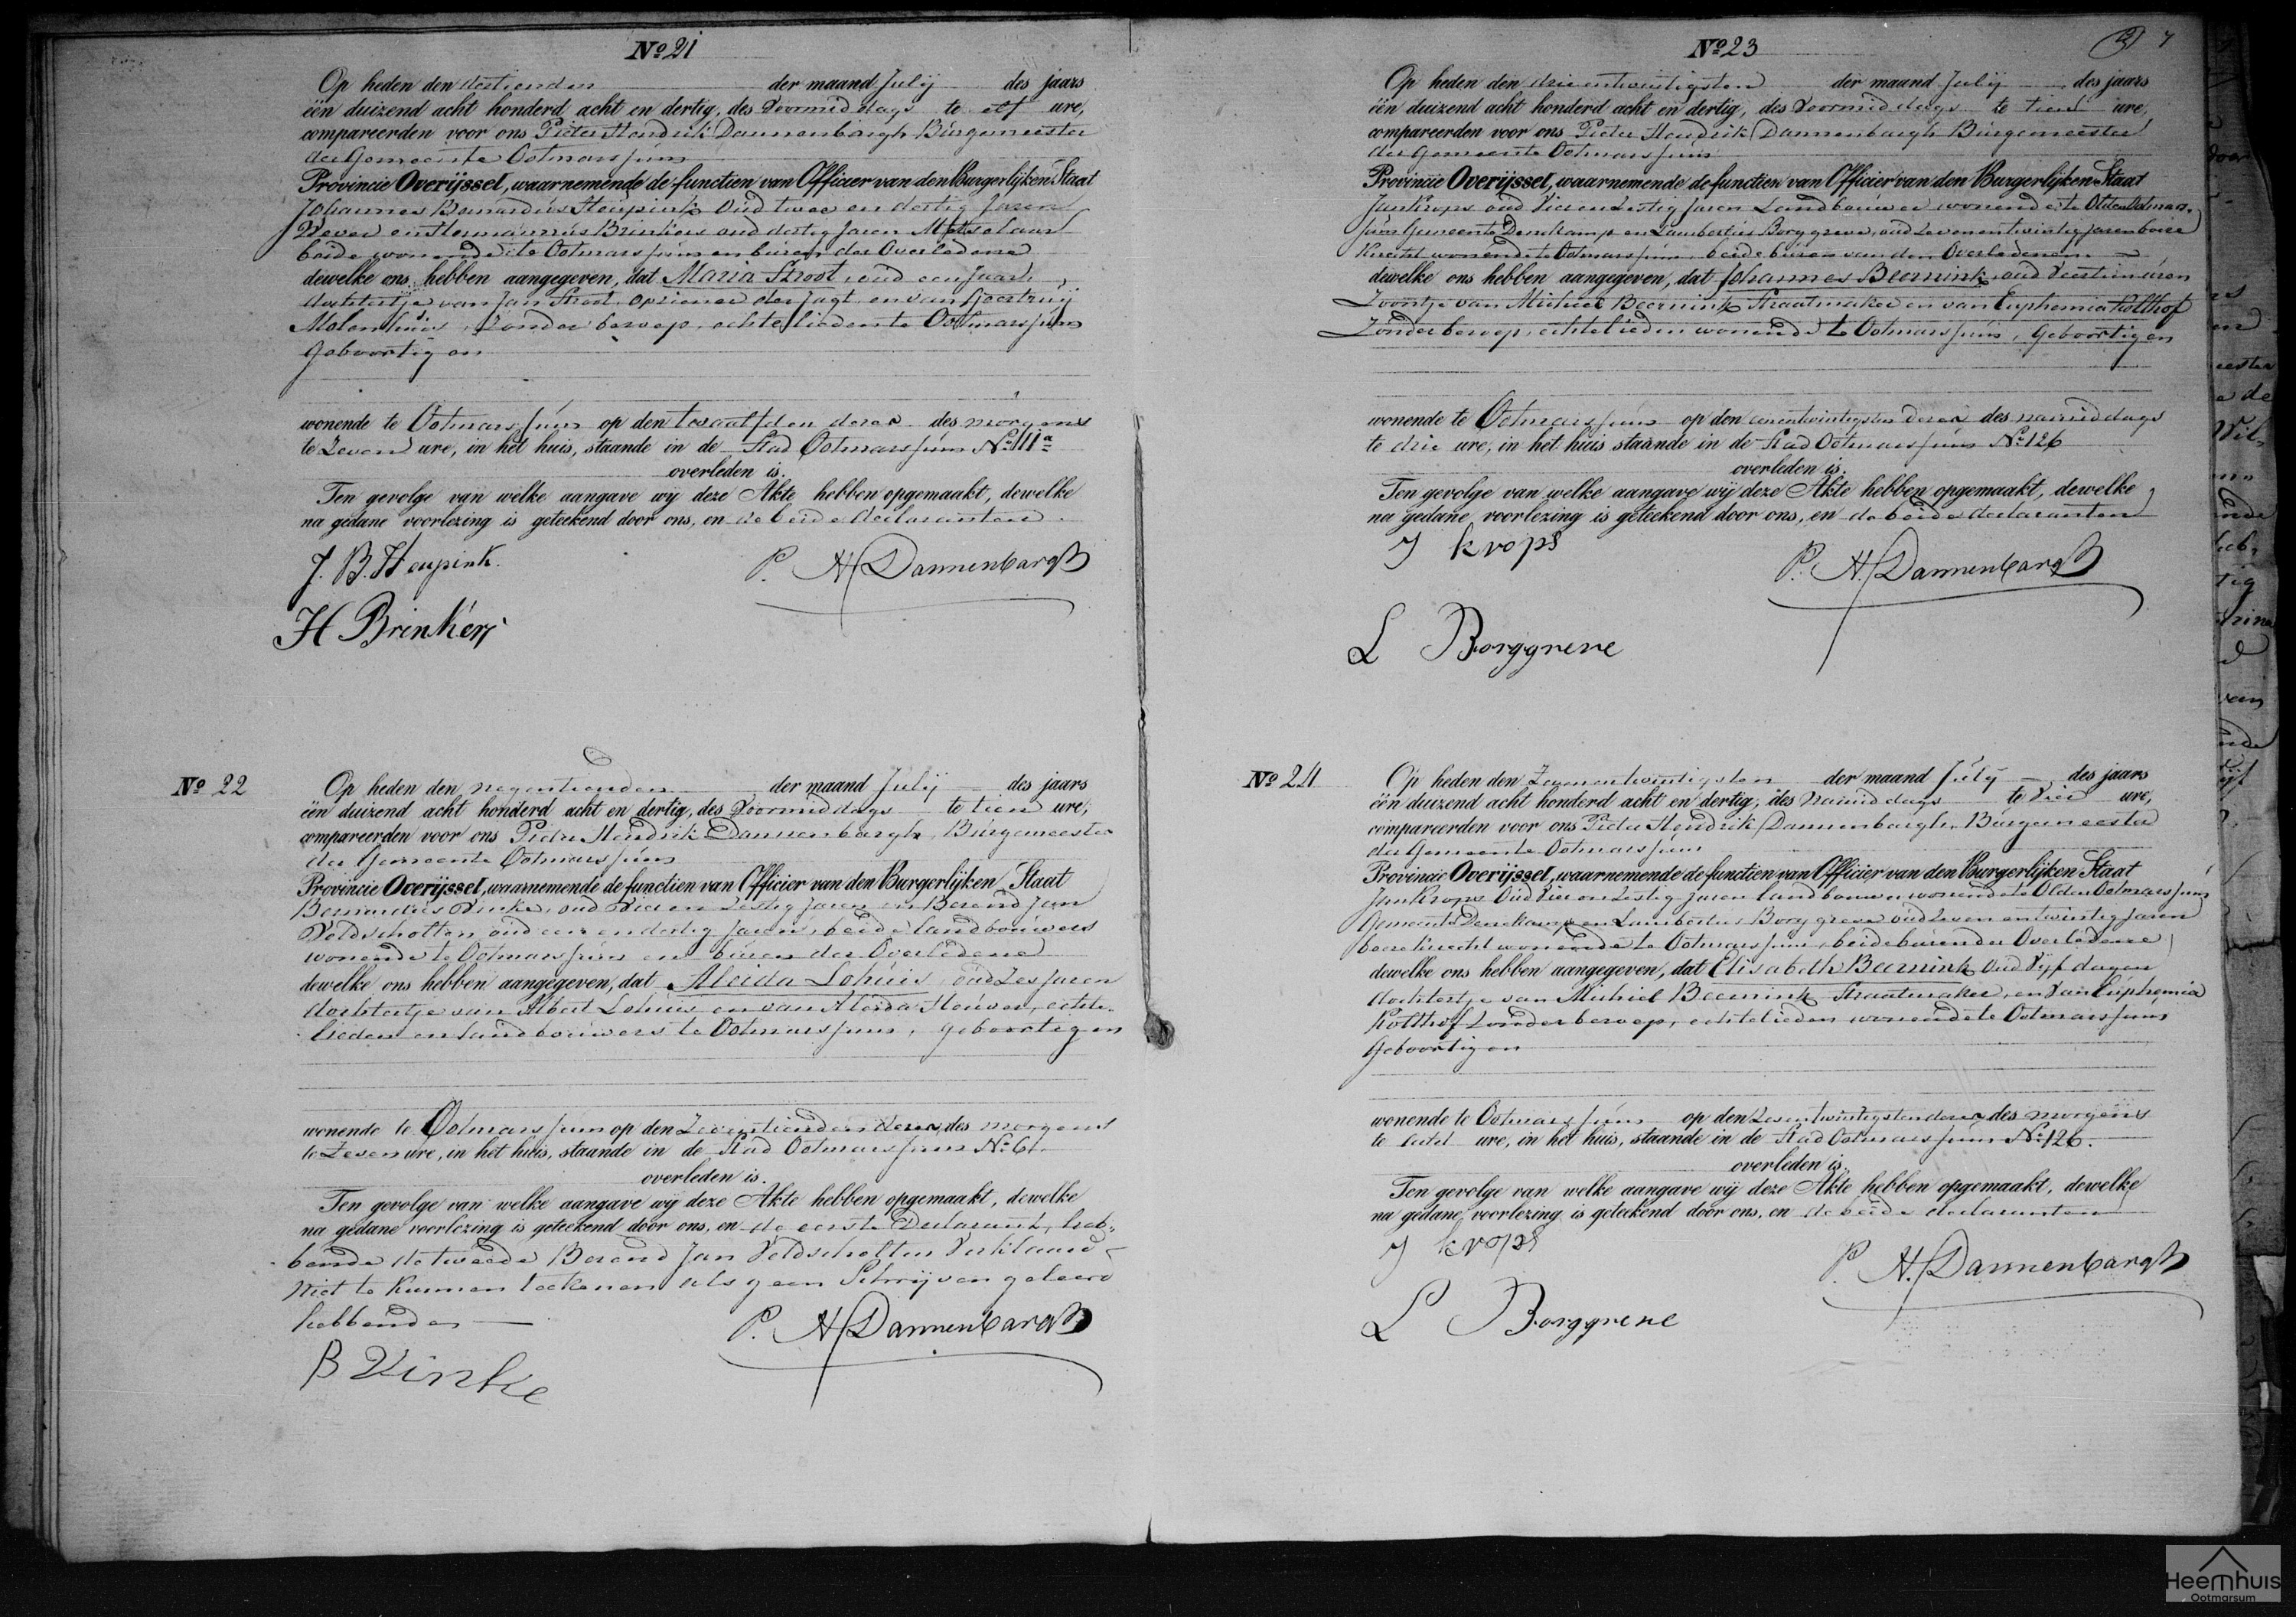 Nº 21
Op heden den dertienden der maand Julij des jaars
één duizend acht honderd acht en dertig, des Voormiddags te elf ure,
compareerden voor ons Pieter Hendrik Dannenbargh Burgemeester
der Gemeente Ootmarssum
Provincie Overijssel, waarnemende de functien van Officier van den Burgerlijken Staat
Johannes Bernardus Heupink oud twee en dertig Jaren
Wever en Hermannus Brinkers oud dertig Jaren Metselaar
beide wonende te Ootmarssum en buren der Overledene
dewelke ons hebben aangegeven, dat Maria Stroot, oud een Jaar,
dochtertje van Jan Stroot, opziener der Jagt en van Geertruij
Molenhuis, zonder beroep, echtelieden te Ootmarssum
Geboortig en
wonende te Ootmarssum op den twaalfden dezer des morgens
te Zeven ure, in het huis, staande in de Stad Ootmarssum Nº 111a
overleden is.
Ten gevolge van welke aangave wij deze Akte hebben opgemaakt, dewelke
na gedane voorlezing is geteekend door ons, en de beide declaranten
J. B. Heupink.
P. H. Dannenbargh
H Brinkers
Nº 22
Op heden den negentienden der maand Julij des jaars
één duizend acht honderd acht en dertig, des Voormiddags te tien ure,
compareerden voor ons Pieter Hendrik Dannenbargh, Burgemeester
der Gemeente Ootmarssum
Provincie Overijssel, waarnemende de functien van Officier van den Burgerlijken Staat
Bernardus Vinke, oud Vier en Zestig Jaren en Berend Jan
Veldscholten, oud een en dertig Jaren, beide landbouwers
wonende te Ootmarssum en buren der Overledene
dewelke ons hebben aangegeven, dat Aleida Lohuis, oud Zes Jaren
dochtertje van Albert Lohuis en van Aleida Heuver, echte-
lieden en landbouwers te Ootmarssum, geboortig en
wonende te Ootmarssum op den Zeventienden dezer des morgens
te Zeven ure, in het huis, staande in de Stad Ootmarssum Nº 61
overleden is.
Ten gevolge van welke aangave wij deze Akte hebben opgemaakt, dewelke
na gedane voorlezing is geteekend door ons, en de eerste Declarant, heb-
bende de tweede Berend Jan Veldscholten Verklaard
niet te kunnen teekenen als geen Schrijven geleerd
hebbende
P. H. Dannenbargh
B Vinke
Nº 23
Op heden den drieentwintigsten der maand Julij des jaars
één duizend acht honderd acht en dertig, des Voormiddags te tien ure,
compareerden voor ons Pieter Hendrik Dannenbargh Burgemeester
der Gemeente Ootmarssum
Provincie Overijssel, waarnemende de functien van Officier van den Burgerlijken Staat
Jan Krops oud Vier en Zestig Jaren Landbouwer wonende te Olden Ootmar-
sum Gemeente Denekamp en Lambertus Borggreve, oud Zeven en twintig Jaren boere
Knecht wonende te Ootmarssum, beide buren van den Overledenen
dewelke ons hebben aangegeven, dat Johannes Beernink oud Veertien
Zoontje van Michiel Beernink Straatmaker en van Euphemia Kolthof
Zonder beroep, echtelieden wonende te Ootmarssum, Geboortig en
wonende te Ootmarssum op den eenentwintigsten dezer des namiddags
te drie ure, in het huis staande in de Stad Ootmarssum Nº 126
overleden is.
Ten gevolge van welke aangave wij deze Akte hebben opgemaakt, dewelke
na gedane voorlezing is geteekend door ons, en de beide declaranten
J krops
P. H. Dannenbargh
L Borggreve
Nº 24
Op heden den Zevenentwintigsten der maand Julij des jaars
één duizend acht honderd acht en dertig, des Namiddags te Vier ure,
compareerden voor ons Pieter Hendrik Dannenbargh, Burgemeester
der Gemeente Ootmarssum
Provincie Overijssel, waarnemende de functien van Officier van den Burgerlijken Staat
Jan Krops Oud Vier en Zestig Jaren landbouwer wonende te Olden Ootmarssum
Gemeente Denekamp en Lambertus Borggreve oud Zeven en twintig Jaren
boereknecht wonende te Ootmarssum, beide buren der Overledene
dewelke ons hebben aangegeven, dat Elisabeth Beernink Oud Vijf dagen
dochtertje van Michiel Beernink Straatmaker, en Van Euphemia
Kolthof Zonder beroep, echtelieden wonende te Ootmarssum
Geboortig en
wonende te Ootmarssum op den Zesentwintigsten dezer des morgens
te acht ure, in het huis, staande in de Stad Ootmarssum Nº 126.
overleden is.
Ten gevolge van welke aangave wij deze Akte hebben opgemaakt, dewelke
na gedane voorlezing is geteekend door ons, en de beide declaranten
J krops
P. H. Dannenbargh
L Borggreve
Heemhuis
Ootmarsum